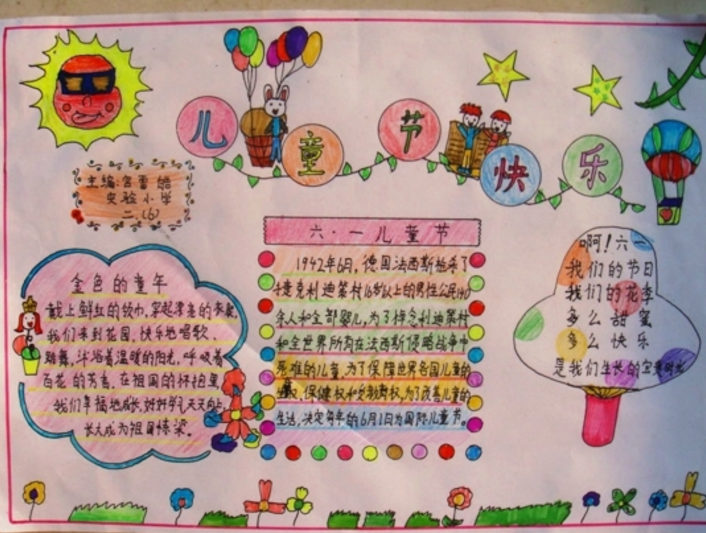 儿童节快乐
主编:宫雷皓
实验小学
二.(6)
金色的童年
戴上鲜红的领巾,穿起漂亮的衣裳,
我们来到花园,快乐地唱歌、
跳舞,沐浴着温暖的阳光,呼吸着
百花的芳香,在祖国的怀抱里,
我们幸福地成长,好好学习,天天向上,
长大成为祖国栋梁。
六·一儿童节
1942年6月,德国法西斯枪杀了
捷克利迪策村16岁以上的男性公民140
余人和全部婴儿,为了悼念利迪策村
和全世界所有在法西斯侵略战争中
死难的儿童,为了保障世界各国儿童的
保健权和受教育权,为了改善儿童的
生活,决定每年的6月1日为国际儿童节。
啊!六一
我们的节日
我们的花季
多么甜蜜
多么快乐
是我们生长的